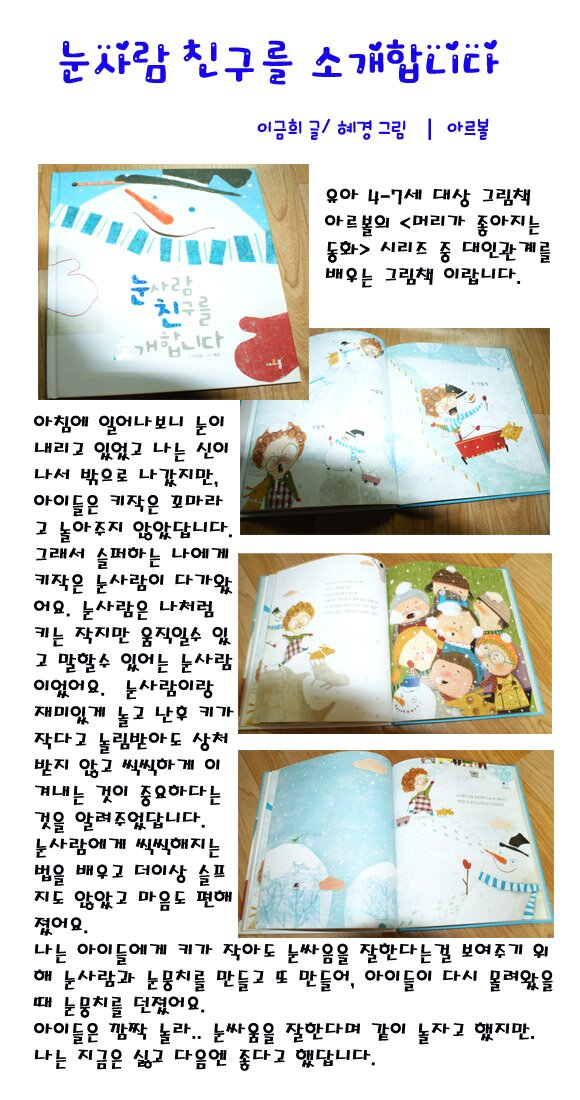 눈사람 친구를 소개합니다
이금희 글/ 혜경 그림 | 아르볼
유아 4-7세 대상 그림책
아르볼의 <머리가 좋아지는
동화> 시리즈 중 대인관계를
배우는 그림책 이랍니다.
눈사람
친구를
소개합니다
아침에 일어나보니 눈이
내리고 있었고 나는 신이
나서 밖으로 나갔지만,
아이들은 키작은 꼬마라
고 놀아주지 않았답니다.
그래서 슬퍼하는 나에게
키작은 눈사람이 다가왔
어요. 눈사람은 나처럼
키는 작지만 움직일수 있
고 말할수 있어는 눈사람
이었어요. 눈사람이랑
재미있게 놀고 난후 키가
작다고 놀림받아도 상처
받지 않고 씩씩하게 이
겨내는 것이 중요하다는
것을 알려주었답니다.
눈사람에게 씩씩해지는
법을 배우고 더이상 슬프
지도 않았고 마음도 편해
졌어요.
나는 아이들에게 키가 작아도 눈싸움을 잘한다는걸 보여주기 위
해 눈사람과 눈뭉치를 만들고 또 만들어, 아이들이 다시 몰려왔을
때 눈뭉치를 던졌어요.
아이들은 깜짝 놀라.. 눈싸움을 잘한다며 같이 놀자고 했지만.
나는 지금은 싫고 다음엔 좋다고 했답니다.